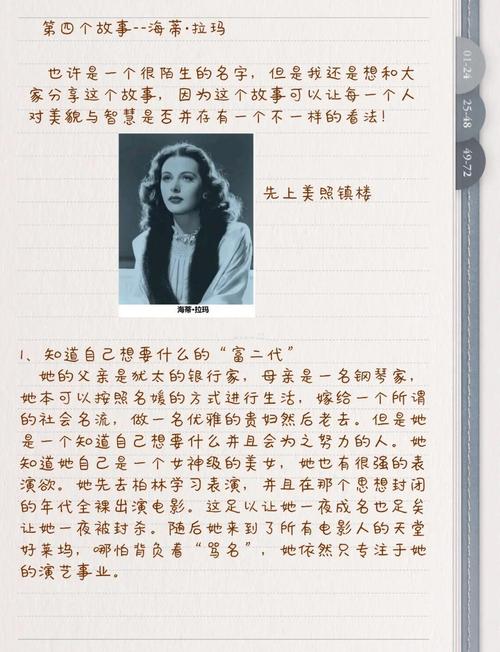 第四个故事--海蒂·拉玛
也许是一个很陌生的名字，但是我还是想和大
家分享这个故事，因为这个故事可以让每一个人
对美貌与智慧是否并存在有一个不一样的看法！
01-24
25-48
49-72
先上美照镇楼
海蒂·拉玛
1、知道自己想要什么的“富二代”
她的父亲是犹太的银行家，母亲是一名钢琴家，
她本可以按照名媛的方式进行生活，嫁给一个所谓
的社会名流，做一名优雅的贵妇然后老去。但是她
是一个知道自己想要什么并且会为之努力的人。她
知道她自己是一个女神级的美女，她也有很强的表
演欲。她先去柏林学习表演，并且在那个思想封闭
的年代全裸出演电影。这足以让她一夜成名也足矣
让她一夜被封杀。随后她来到了所有电影人的天堂
好莱坞，哪怕背负着“骂名”，她依然只专注于她
的演艺事业。